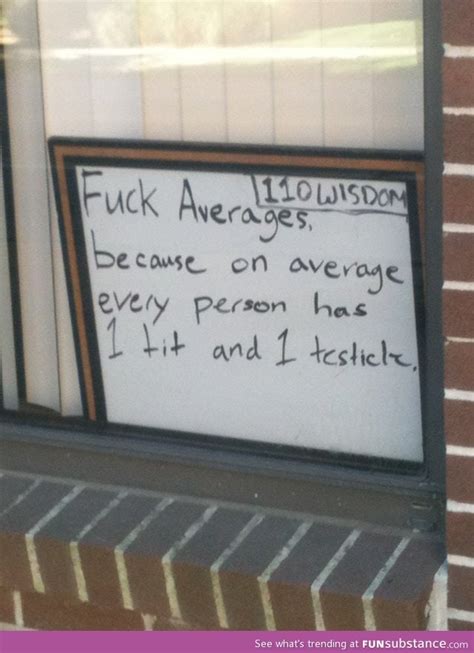 110 WISDOM
Fuck Averages,
because on average
every person has
1 tit and 1 testicle.
See what's trending at FUNsubstance.com